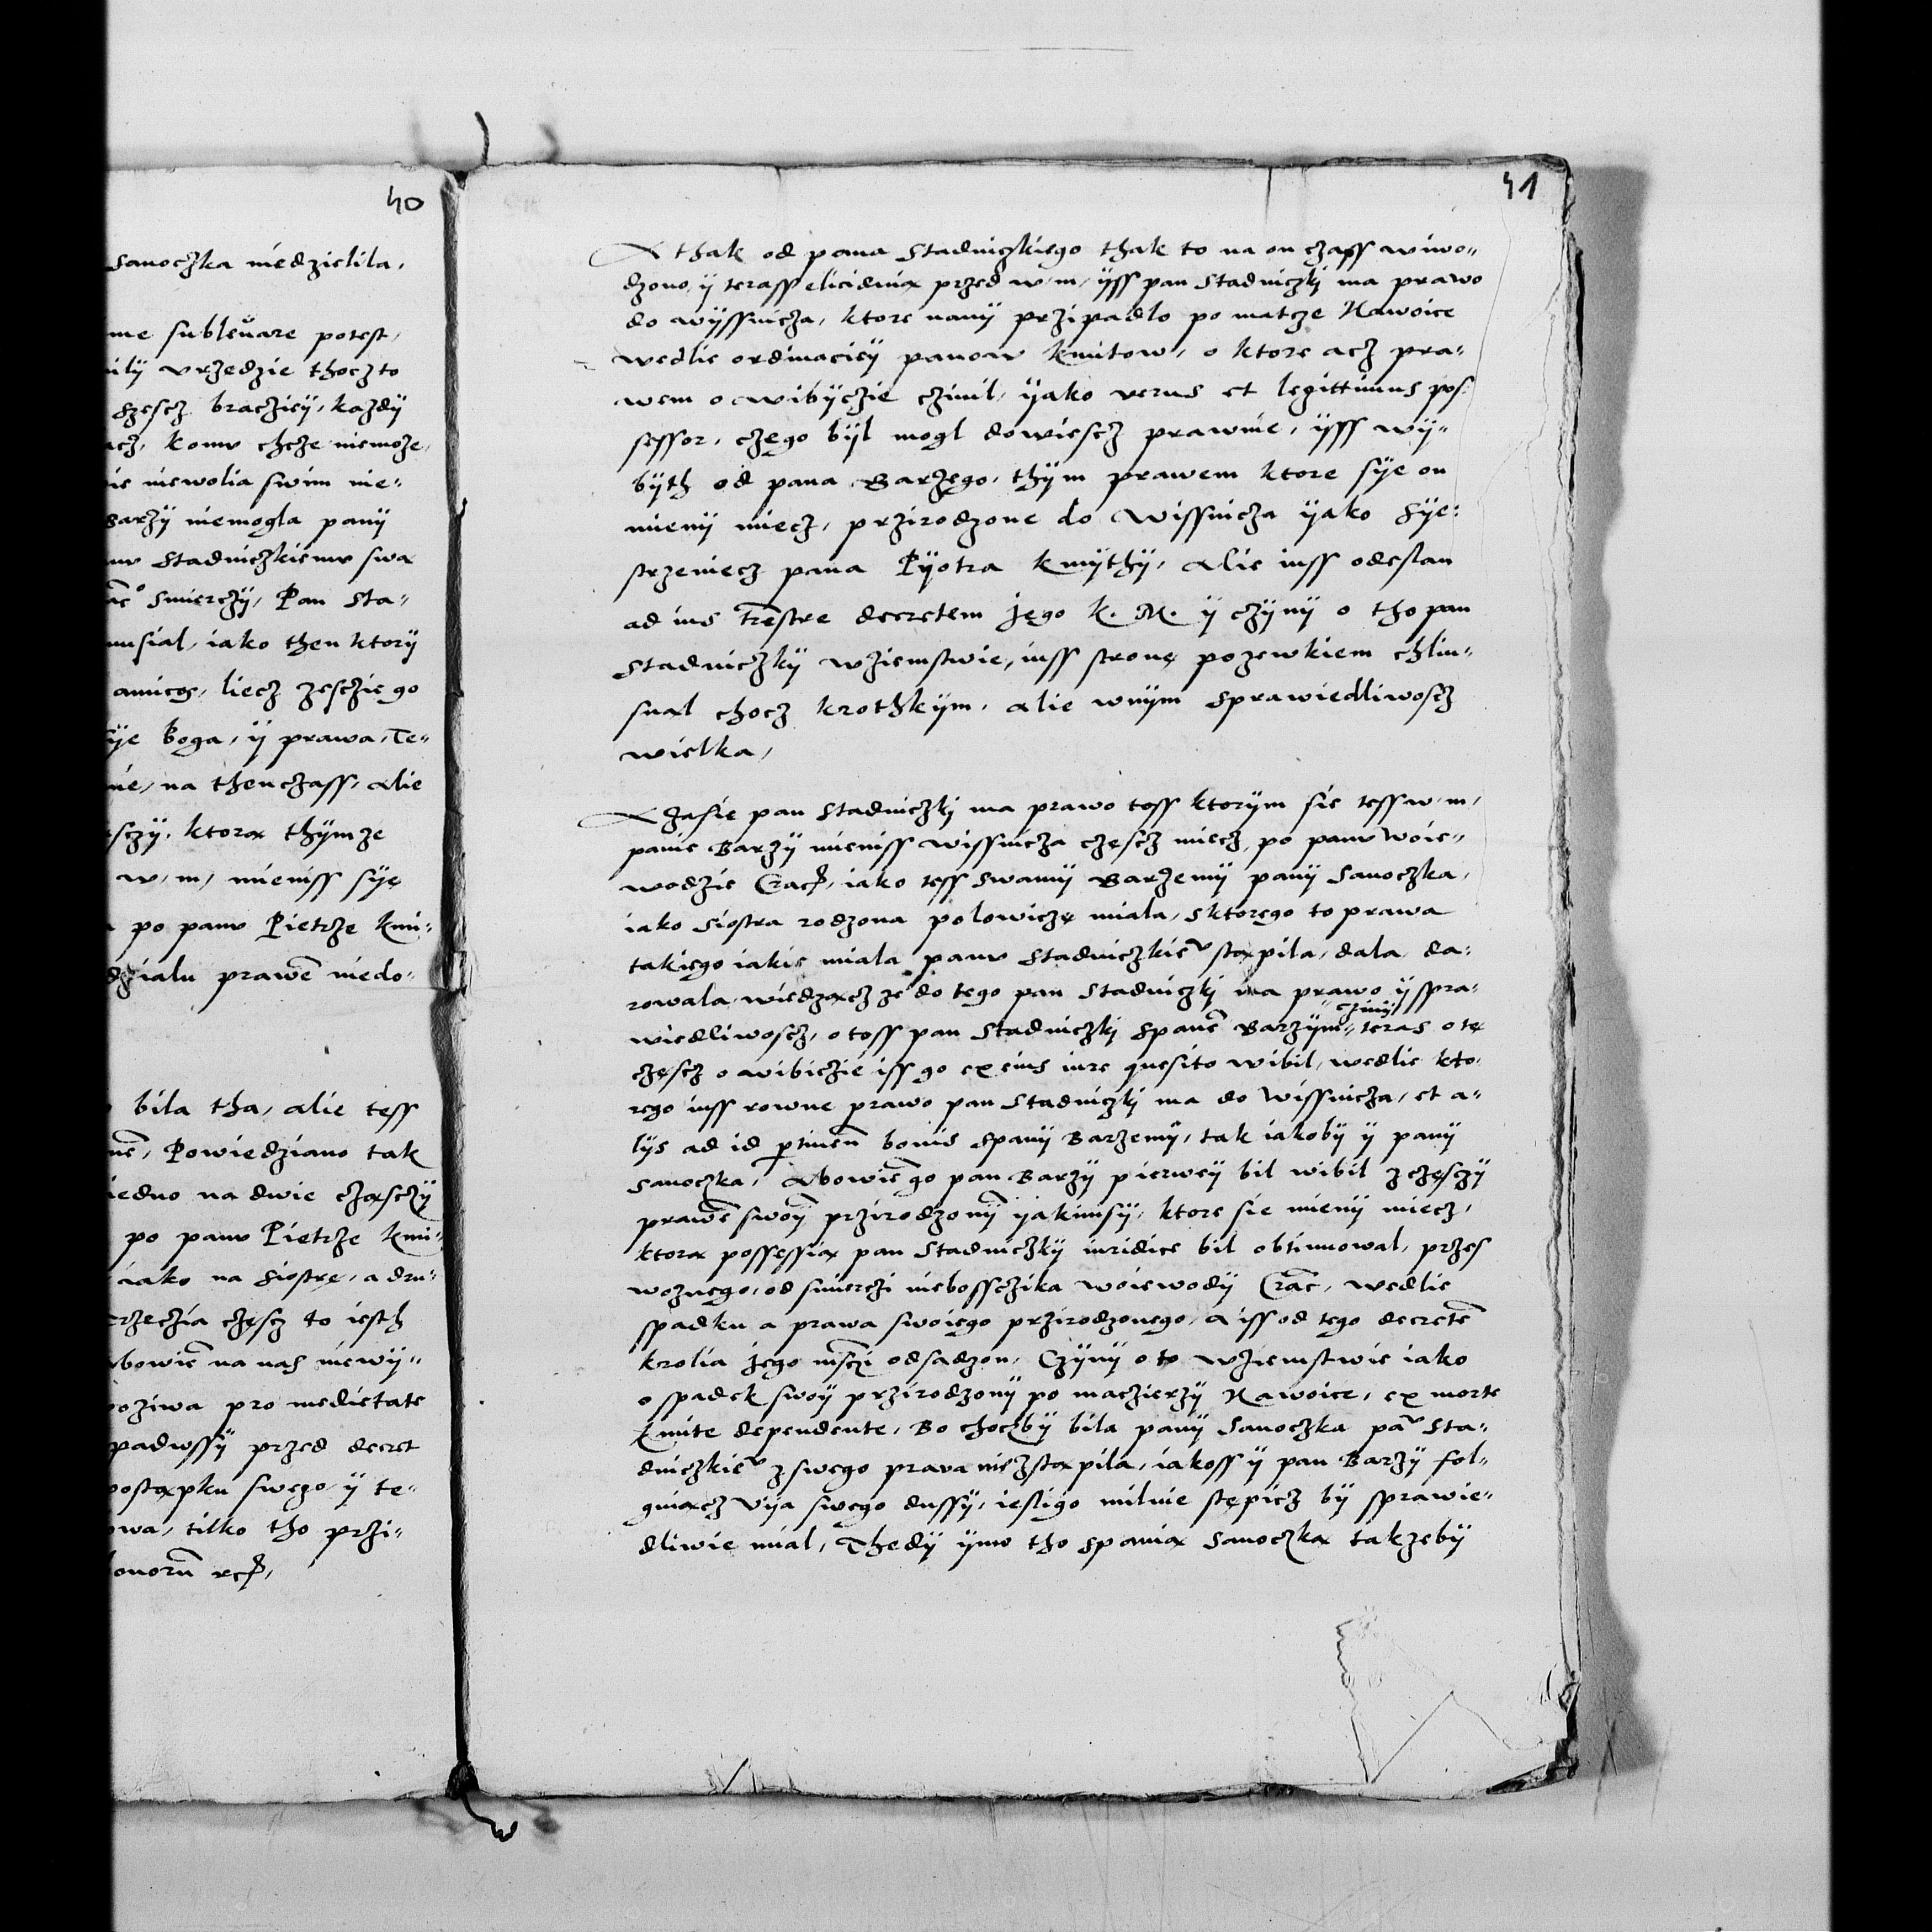 40
Sanoczka niedzielila,
me sublevare potest,
ily vrzedzie thoczto
szescz braczieÿ, kazdÿ
acz, komv chcze niemoze,
ie niewolia swim nie=
Barzÿ niemogla panÿ
nv Stadniczkiemv swa
smierczÿ, Pan Sta=
musial, iako then ktorÿ
amicos, liecz zesczie go
sÿe boga, ÿ prawa, Te=
nie, na thenczass, alie
sczÿ, ktora thÿmze
w, m, mieniss sÿę
po panv Pietrze Kmi=
dzialu prawē niedo=
bila tha, alie tess
nē, Powiedziano tak
iedno na dwie cząsczÿ
po panv Pietrze Kmi=
iako na siostrę, a dru=
trzeczia częscz to iesth
abowiē na nas niewÿ=
poziwa pro medietate
padwssÿ przed decret
postąpku swego, ÿ te=
owa, tilko tho przi=
bonorū
41
A thak od pana Stadniczkiego thak to na on czass wiwo=
dzono, ÿ terass elicidnią przed w, m, ÿss pan Stadniczkj ma prawo
do wÿssnicza, ktore nanÿ przipadlo po matcze Nawoice
wedlie ordinacieÿ panow Kmitow, o ktore acz pra=
wem o wibÿczie czinil, ÿako verus et legittimus pos=
sessor, czego bÿl mogl dowiescz prawnie, ÿss wÿ=
bÿth od pana Barzego, thÿm prawem ktore sÿe on
mienÿ miecz, przirodzone do Wissnicza ÿako Sÿe=
strzeniecz pana Pÿotra Kmÿthÿ, alie iuss odeslan
ad ius Trēstre decretem jego K. M. ÿ czÿnÿ o tho pan
Stadniczkÿ wziemstwie, iuss stronę pozewkiem chlin=
snąl chocz krothkÿm, alie wnÿm sprawiedliwoscz
wielka,
A zasie pan Stadniczkj ma prawo toss ktorÿm sie tess w, m,
panie Barzÿ mieniss wissnicza częscz miecz, po panv woie=
wodzie Crac, iako tess swamÿ Barzemÿ panÿ Sanoczka,
iako siostra rodzona polowiczę miala, sktorego to prawa
takiego iakie miala panv Stadniczkieᵛ stąpila, dala da=
rowala, wiedzącz ze do tego pan Stadniczkj ma prawo ÿ spra=
czinÿ
wiedliwoscz, o toss pan Stadniczkj spanē Barzÿm= teras o tę
częscz o wibiczie iss go ex eius iure quesito wibil, wedlie kto=
rego iuss rowne prawo pan Stadniczkj ma do Wissnicza, et a=
lÿs ad id ptineñ bonis spanÿ Barzemÿ, tak iakobÿ ÿ panÿ
Sanoczka, Abowiē go pan Barzÿ pierweÿ bil wibil zczęsczÿ
prawē swoÿ̄ przirodzonÿ̄ ÿakimsÿ, ktore sie mienÿ miecz,
ktorą possessią pan Stadniczkÿ iuridice bil obtinnowal, przes
woznego, od smierczi niebosczika woiewodÿ Crāc, wedlie
spadku a prawa swoiego przirodzonego, a iss od tego decretē
krolia jego msczi odsadzon, Czÿnÿ o to wziemstwie iako
o spadek swoÿ przirodzonÿ po maczierzÿ Nawoice, ex morte
Kmite dependente, Bo choczbÿ bila panÿ Sanoczka paᵛ Sta=
dniczkieᵛ z swego prava niezstąpila, iakoss ÿ pan Barzÿ fol=
guiącz Vÿa swego dussÿ, iesligo milnie stępicz bÿ sprawie=
dliwie mial, Thedÿ ÿmv tho spanią Sanoczką takzebÿ